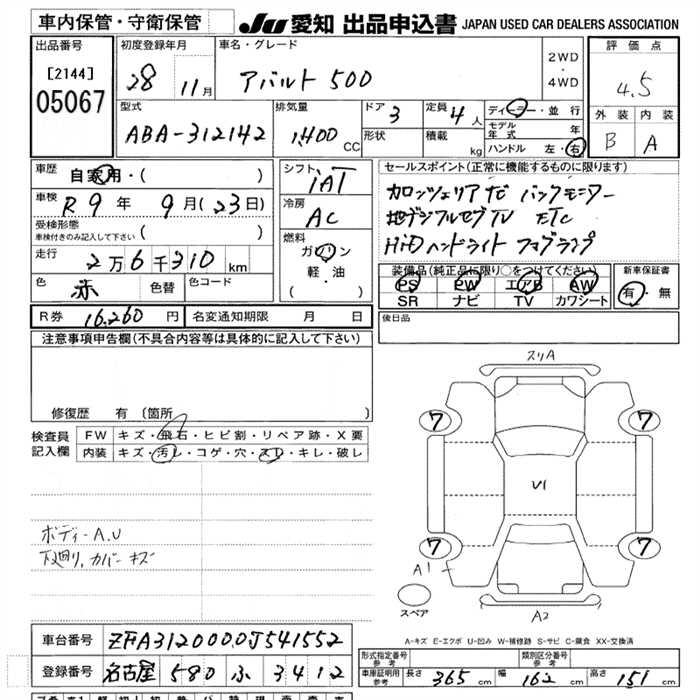 車内保管・守衛保管
JU 愛知 出品申込書 JAPAN USED CAR DEALERS ASSOCIATION
出品番号
[2144]
05067
初度登録年月
28 11月
車名・グレード
アバルト500
2WD
・
4WD
評価点
4.5
外装 内装
B A
型式
ABA-312142
排気量
1,400 CC
ドア 3
形状
定員 4人
積載 kg
ディーラー・並行
モデル年式 年
ハンドル 左・右
車歴
自家用・( )
車検
R9年 9月(23日)
受検形態
車検付きのみ記入して下さい ( )
走行
2万6千310km
色 赤 色替 色コード
シフト
iAT
冷房
AC
燃料
ガソリン
軽・油
( ・ )
セールスポイント(正常に機能するものに限り)
カロッツェリアナビ バックモニター
地デジフルセグTV ETC
HiDヘッドライト フォグランプ
装備品(純正品に限り○をつけてください)
PS PW エアB AW
SR ナビ TV カワシート
新車保証書
有・無
R券 16,260円 名変通知期限 月 日
後日品
注意事項申告欄(不具合内容等は具体的に記入して下さい)
修復歴 有 [箇所 ]
検査員記入欄
FW キズ・飛石・ヒビ割・リペア跡・X要
内装 キズ・汚レ・コゲ・穴・スレ・キレ・破レ
ボディーA.U
下廻り.カバーキズ
スリA
7 7
V1
7 7
A1
スペア
A2
A-キズ E-エクボ U-凹み W-補修跡 S-サビ C-腐食 XX-交換済
車台番号 ZFA3120000J541552
登録番号 名古屋 580 ふ 3412
形式指定番号 参考
類別区分番号 参考
車庫証明用参考 長さ 365cm 幅 162cm 高さ 151cm